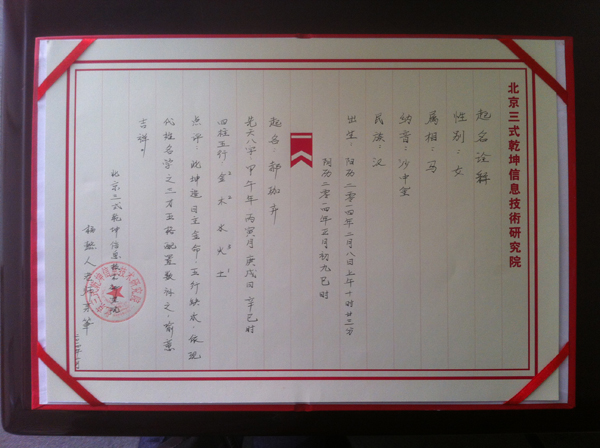 北京三式乾坤信息技術研究院
起名诠释
性别：女
属相：马
纳音：沙中金
民族：汉
出生：阳历二零一四年二月八日上午十时廿三分
阴历二零一四年正月初九巳时
起名：郭
先天八字：甲午年 丙寅月 庚戌日 辛巳时
四柱五行 金2 木2 水 火3 土1
点评：此坤造日主金命，五行缺水，依现
代姓名学之三才五格配置数
吉祥
北京三式乾坤信息技术研究院